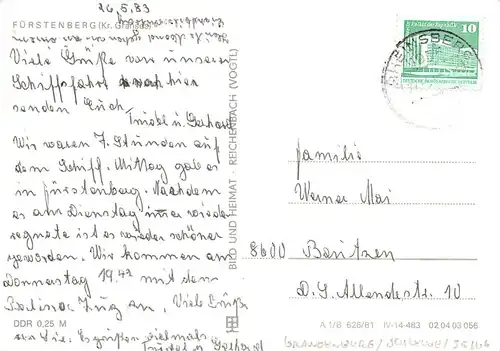 26.5.83
FÜRSTENBERG (Kr. Gransee)
Viele Grüße von unserer
Schiffsfahrt nach hier
senden Euch,
Trudel u. Gerhard
Wir waren 7. Stunden auf
dem Schiff. Mittag gab es
in Fürstenberg. Nachdem
es am Dienstag immer wieder
regnete ist es wieder schöner
geworden. Wir kommen am
Donnerstag 19.42 mit dem
Berliner Zug an. Viele Grüße
Es grüßen vielmals
Trudel u. Gerhard
DDR 0,25 M
BILD UND HEIMAT · REICHENBACH (VOGTL)
RHEINSBERG
10
Familie
Werner Mai
8600 Bautzen
D. S. Allendestr. 10
A 1/B 628/81 IV-14-483 02 04 03 056
BRANDENBURG/